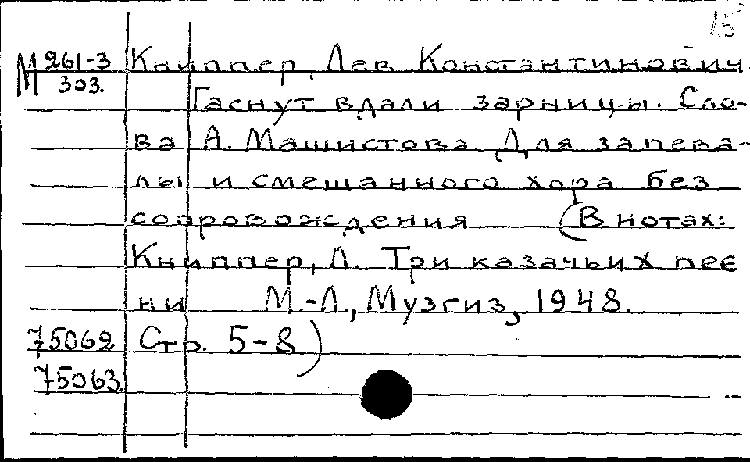 15
М 261-3 Книппер, Лев Константинович.
303. Гаснут вдали зарницы. Сло-
ва А. Машистова Для запева-
лы и смешанного хора без
сопровождения (В нотах:
Книппер, Л. Три казачьих пес
ни М.-Л., Музгиз, 1948.
75062 Стр. 5-8)
75063.